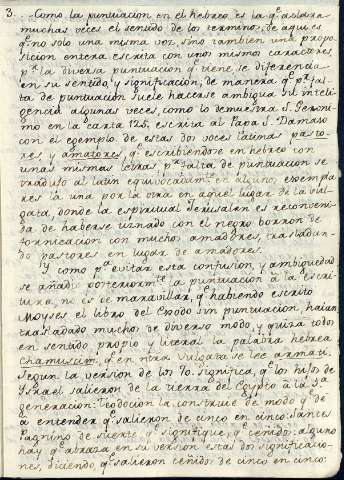 3. ..Como la puntuacion en el hebreo es la qe aclara
muchas veces el sentido de los terminos, de aqui es
qe no solo una misma voz, sino tambien una propo
sicion entera escrita con unos mismos caracteres
pr la diversa puntuacion qe tiene, se diferencia
en su sentido, y significacion, de manera qe pr fal
ta de puntuacion suele hacerse ambigua su inteli
gencia algunas veces, como lo demuestra S. Geroni
mo en la carta 125, escrita al Papa S. Damaso
con el egemplo de estas dos voces latinas pasto-
res, y amatores qe escribiendose en hebreo con
unas mismas letras pr falta de puntuacion se
tradujo al latin equivocadamte en algunos exempla
res la una por la otra en aquel lugar de la vul-
gata, donde la espiritual Jerusalen es reconveni
da de haberse tiznado con el negro borron de
fornicacion con muchos amadores, trasladan-
do pastores en lugar de amadores.
Y como pa evitar esta confusion, y ambiguedad
se añadio posteriormte la puntuacion à la Escri-
tura, no es de maravillar, qe habiendo escrito
Moyses el libro del Exodo sin puntuacion, haian
trasladado muchos de diverso modo, y quiza todos
en sentido propio y literal la palabra hebrea
chamusim, qe en ntra Vulgata se lee armati.
Segun la version de los 70. significa, qe los hijos de
Ysrael salieron de la tierra del Egypto à la 5a
generacion: Teodocion la construie de modo qe dè
a entender qe salieron de cinco en cinco: Santes
Pagnino de suerte qe signifique, qe ceñidos: alguno
hay qe abraza en su version estas dos significacio-
nes, diciendo, qe salieron ceñidos de cinco en cinco: